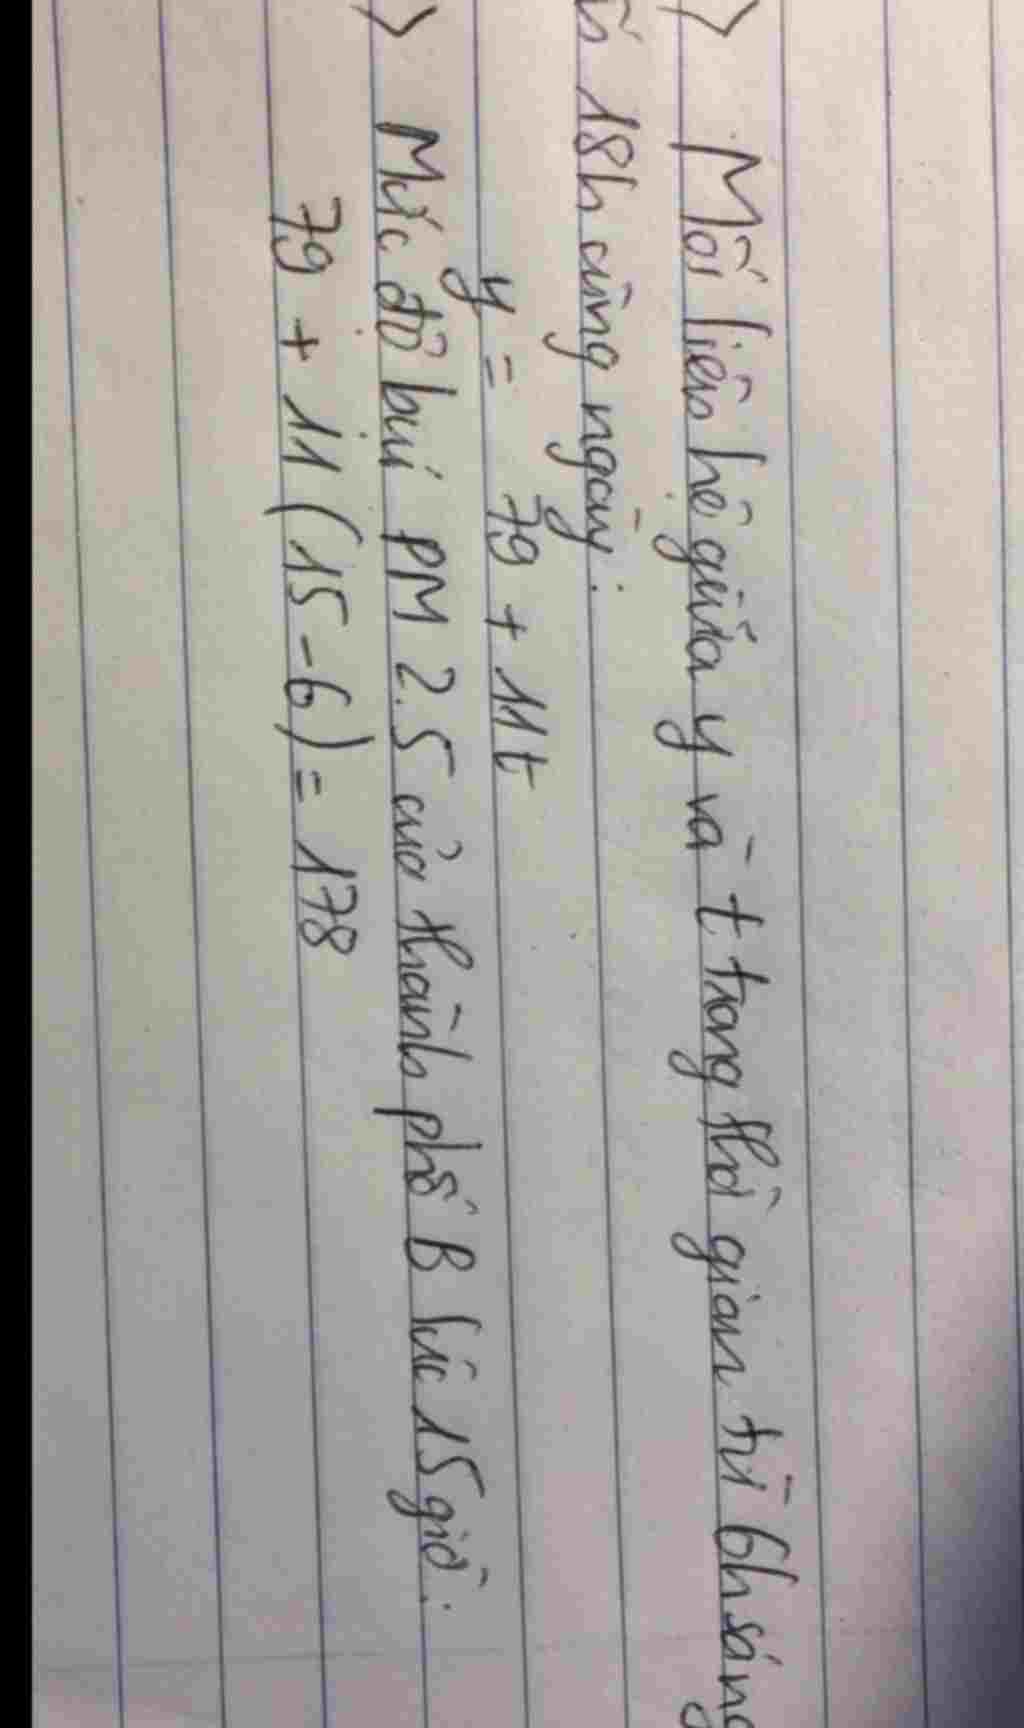 > Mối liên hệ giữa y và t trong thời gian từ 6h sáng
đến 18h cùng ngày:
y = 79 + 11t
> Mức độ bụi PM 2.5 của thành phố B lúc 15 giờ:
79 + 11 (15 - 6) = 178